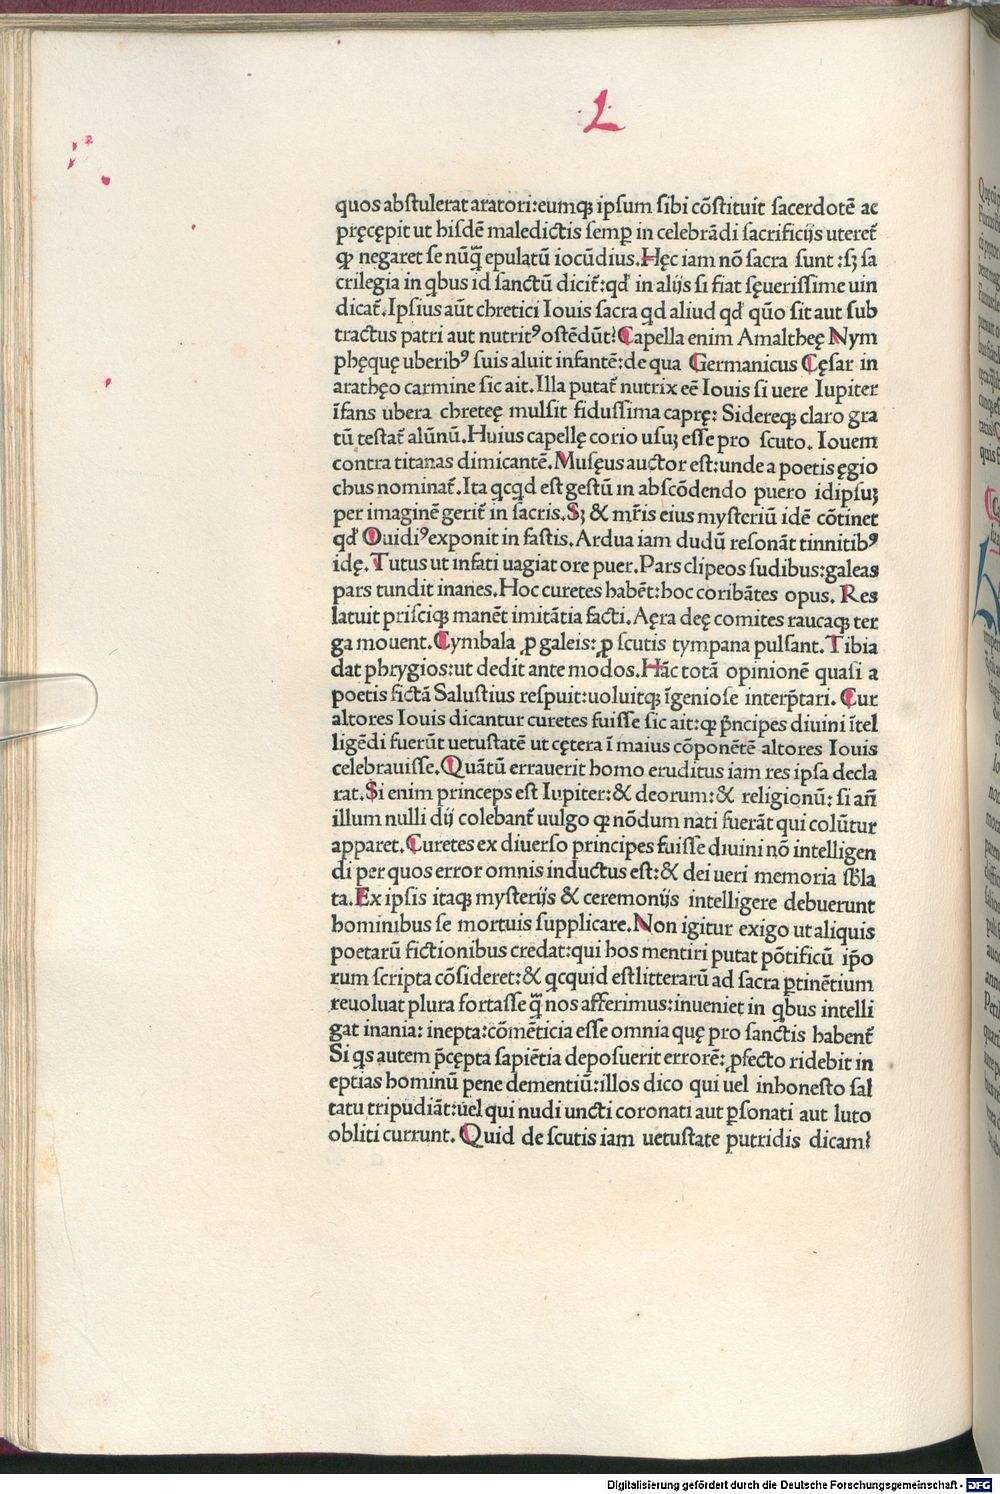 L
quos abstulerat aratori:eumqꝫ ipsum sibi cōstituit sacerdotē ac
pręcępit ut hisdē maledictis semꝑ in celebrādi sacrificijs uteret᷑
ꝙ negaret se nūq̄ꝫ epulatū iocūdius.Hęc iam nō sacra sunt :sꝫ sa
crilegia in qbus id sanctū dicit᷑:qđ in alijs si fiat sęuerissime uin
dicat᷑.Ipsius aūt chretici Iouis sacra qd aliud qđ quo sit aut sub
tractus patri aut nutritꝰ ostēdūt?Capella enim Amalthęę Nym
phęquę uberibꝰ suis aluit infantē:de qua Germanicus Cęsar in
arathęo carmine sic ait.Illa putat᷑ nutrix eē Iouis si uere Iupiter
īfans ubera chreteę mulsit fidussima caprę: Sidereqꝫ claro gra
tū testat᷑ alūnū.Huius capellę corio usuꝫ esse pro scuto. Iouem
contra titanas dimicantē.Musęus auctor est:unde a poetis ęgio
chus nominat᷑.Ita qcqd est gestū in abscōdendo puero idipsuꝫ
per imaginē gerit᷑ in sacris.Sꝫ & mr̄is eius mysteriū idē cōtinet
qđ Ouidiꝰ exponit in fastis.Ardua iam dudū resonāt tinnitibꝰ
idę.Tutus ut infati uagiat ore puer.Pars clipeos sudibus:galeas
pars tundit inanes.Hoc curetes habēt:hoc coribātes opus. Res
latuit prisciqꝫ manēt imitātia facti.Aęra deę comites raucaqꝫ ter
ga mouent.Cymbala ꝓ galeis:ꝓ scutis tympana pulsant.Tibia
dat phrygios:ut dedit ante modos.Hāc totā opinionē quasi a
poetis fictā Salustius respuit:uoluitqꝫ īgeniose interp̄tari. Cur
altores Iouis dicantur curetes fuisse sic ait:ꝙ p̄ncipes diuini ītel
ligēdi fuerūt uetustatē ut cętera ī maius cōponētē altores Iouis
celebrauisse.Quātū errauerit homo eruditus iam res ipsa decla
rat.Si enim princeps est Iupiter:& deorum:& religionū: si añ
illum nulli dij colebant᷑ uulgo ꝙ nōdum nati fuerāt qui colūtur
apparet.Curetes ex diuerso principes fuisse diuini nō intelligen
di per quos error omnis inductus est:& dei ueri memoria sb̄la
ta.Ex ipsis itaqꝫ mysterijs & ceremonijs intelligere debuerunt
hominibus se mortuis supplicare.Non igitur exigo ut aliquis
poetarū fictionibus credat:qui hos mentiri putat pōtificū ip̄o
rum scripta cōsideret:& qcquid est litterarū ad sacra ꝑtinētium
reuoluat plura fortasse q̄ꝫ nos afferimus:inueniet in qbus intelli
gat inania: inepta:cōmēticia esse omnia quę pro sanctis habent᷑
Si qs autem p̄cępta sapiētia deposuerit errorē: ꝓfecto ridebit in
eptias hominū pene dementiū:illos dico qui uel inhonesto sal
tatu tripudiāt:uel qui nudi uncti coronati aut ꝑsonati aut luto
obliti currunt. Quid de scutis iam uetustate putridis dicam?
Digitalisierung gefördert durch die Deutsche Forschungsgemeinschaft - DFG